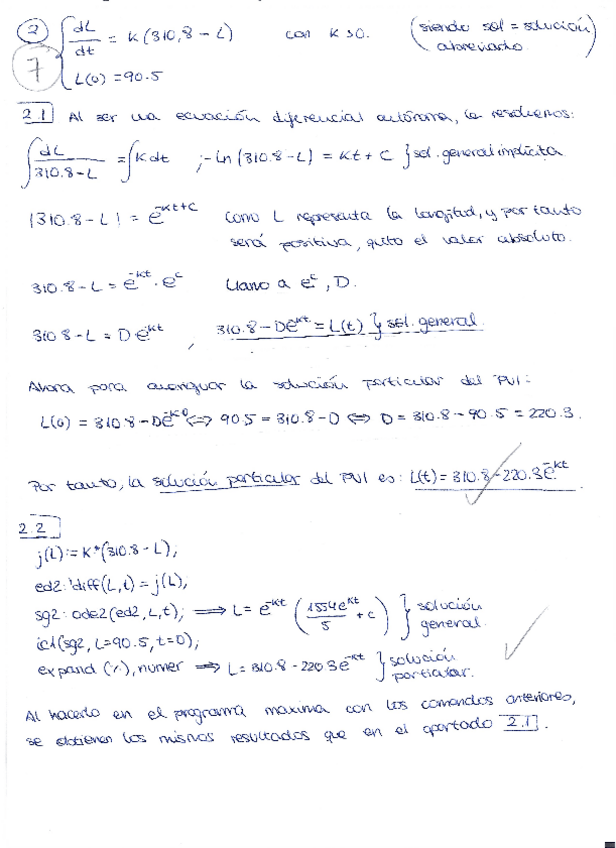 ② { dL/dt = K(310,8 - L) con K>0. (siendo sol = solución
L(0) = 90.5 abreviado)
7
2.1 Al ser una ecuación diferencial autónoma, la resolvemos:
∫ dL/(310.8-L) = ∫ K dt ; -Ln(310.8-L) = Kt + C } sol. general implícita
|310.8-L| = e^(-Kt+C) Como L representa la longitud, y por tanto
será positiva, quito el valor absoluto.
310.8-L = e^(-Kt) · e^c Llamo a e^c, D.
310.8-L = D e^(-Kt) 310.8-De^(-Kt) = L(t) } sol. general.
Ahora para averiguar la solución particular del PVI:
L(0) = 310.8-De^(-K0) ⇔ 90.5 = 310.8-D ⇔ D = 310.8-90.5 = 220.3.
Por tanto, la solución particular del PVI es: L(t) = 310.8-220.3e^(-Kt)
2.2
j(L):=K*(310.8-L);
ed2:'diff(L,t)=j(L);
sg2:ode2(ed2,L,t); ⟹ L = e^(-Kt) (1554e^(Kt)/5 + c) } solución general.
ic1(sg2, L=90.5, t=0);
expand (%), numer ⟹ L = 310.8-220.3e^(-Kt) } solución particular.
Al hacerlo en el programa maxima con los comandos anteriores,
se obtienen los mismos resultados que en el apartado 2.1.